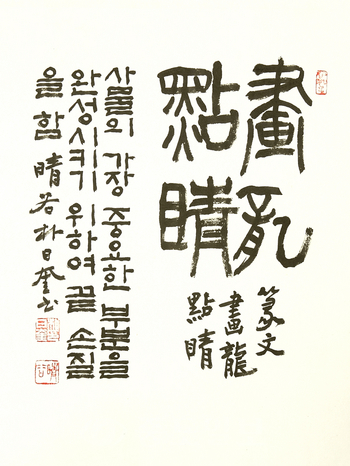 畫龍
點睛
篆文
畫龍
點睛
사물의 가장 중요한 부분을
완성시키기 위하여 끝 손질
을 함 晴若 朴日奎 书